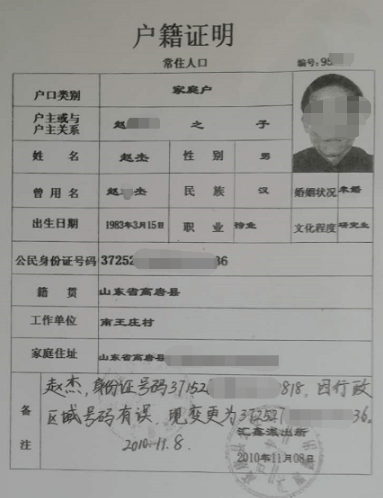 户籍证明
常住人口
编号:95
户口类别 家庭户
户主或与户主关系 赵 之 子
姓名 赵杰 性别 男
曾用名 赵 杰 民族 汉 婚姻状况 未婚
出生日期 1983年3月15日 职业 文化程度 研究生
公民身份证号码 37252 36
籍贯 山东省高唐县
工作单位 南王庄村
家庭住址 山东省高唐县
备注 赵杰,身份证号码37152 818,因行政
区域号码有误,现变更为372527 36。
2010-11.8. 汇鑫派出所
2010年11月08日